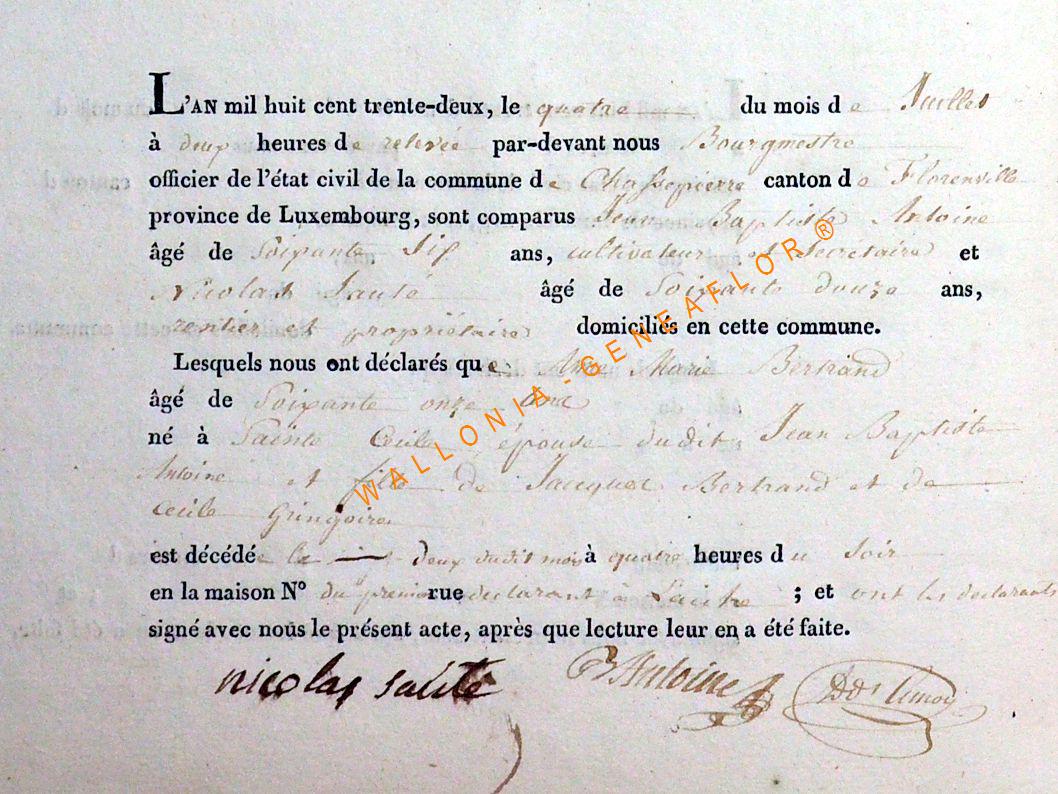 L'AN mil huit cent trente-deux, le quatre du mois de Juillet
à deux heures de relevée par-devant nous Bourgmestre
officier de l'état civil de la commune de Chassepierre canton de Florenville
province de Luxembourg, sont comparus Jean Baptiste Antoine
âgé de Soixante Six ans, cultivateur et Secrétaire et
Nicolas Sauté âgé de Soixante douze ans,
rentier et propriétaire domiciliés en cette commune.
Lesquels nous ont déclarés que Anne Marie Bertrand
âgé de Soixante onze ans
né à Sainte Cecile épouse dudit Jean Baptiste
Antoine et fille de Jacques Bertrand et de
Cecile Gringoire
est décédée le deux dudit mois à quatre heures du Soir
en la maison N° du premier rue declarant à ; et ont les declarants
signé avec nous le présent acte, après que lecture leur en a été faite.
nicolas sauté Antoine
WALLONIA-GENEAFLOR ®